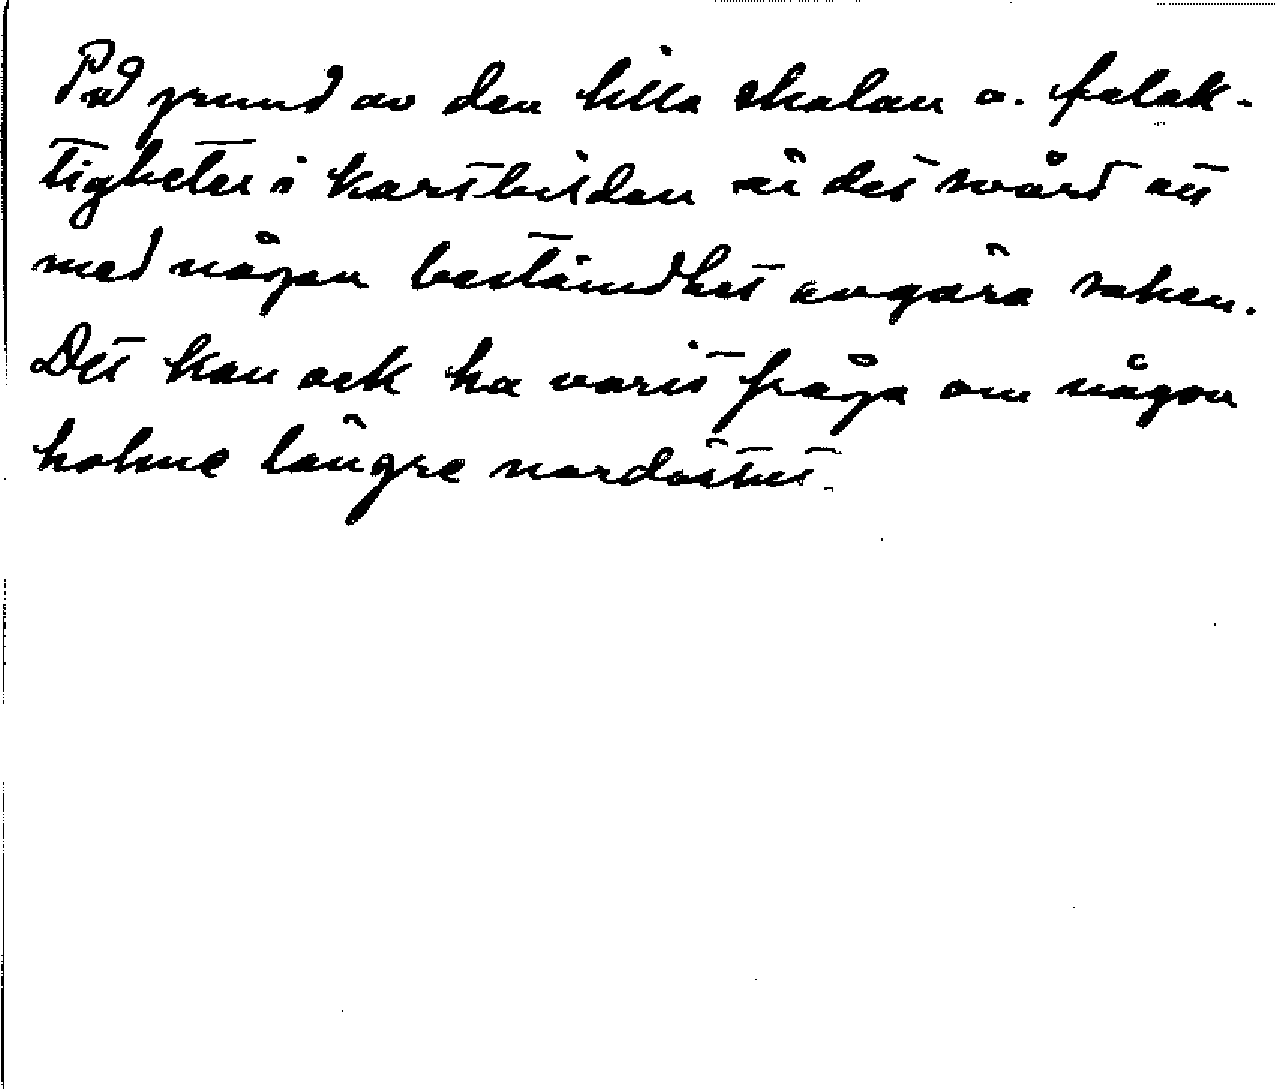 På grund av den lilla skalan o. felak-
tigheter i kartbilden är det svårt att
med någon bestämdhet avgöra saken.
Det kan ock ha varit fråga om någon
holme längre nordöstut.